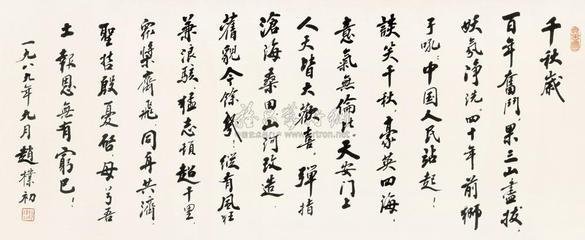 千秋歲
百年奮鬥,果三山盡拔,
妖氛淨洗。四十年前獅
子吼:中国人民站起!
談笑千秋,豪英四海,
意氣無倫比。天安门上
人天皆大歡喜。彈指
滄海桑田,山河改造,
舊貌今餘幾?縱有風狂
兼浪駭,猛志頓超千里。
眾槳齊飛,同舟共濟,
聖哲殷憂啓。母兮吾
土,報恩無有窮已!
一九八九年九月趙樸初